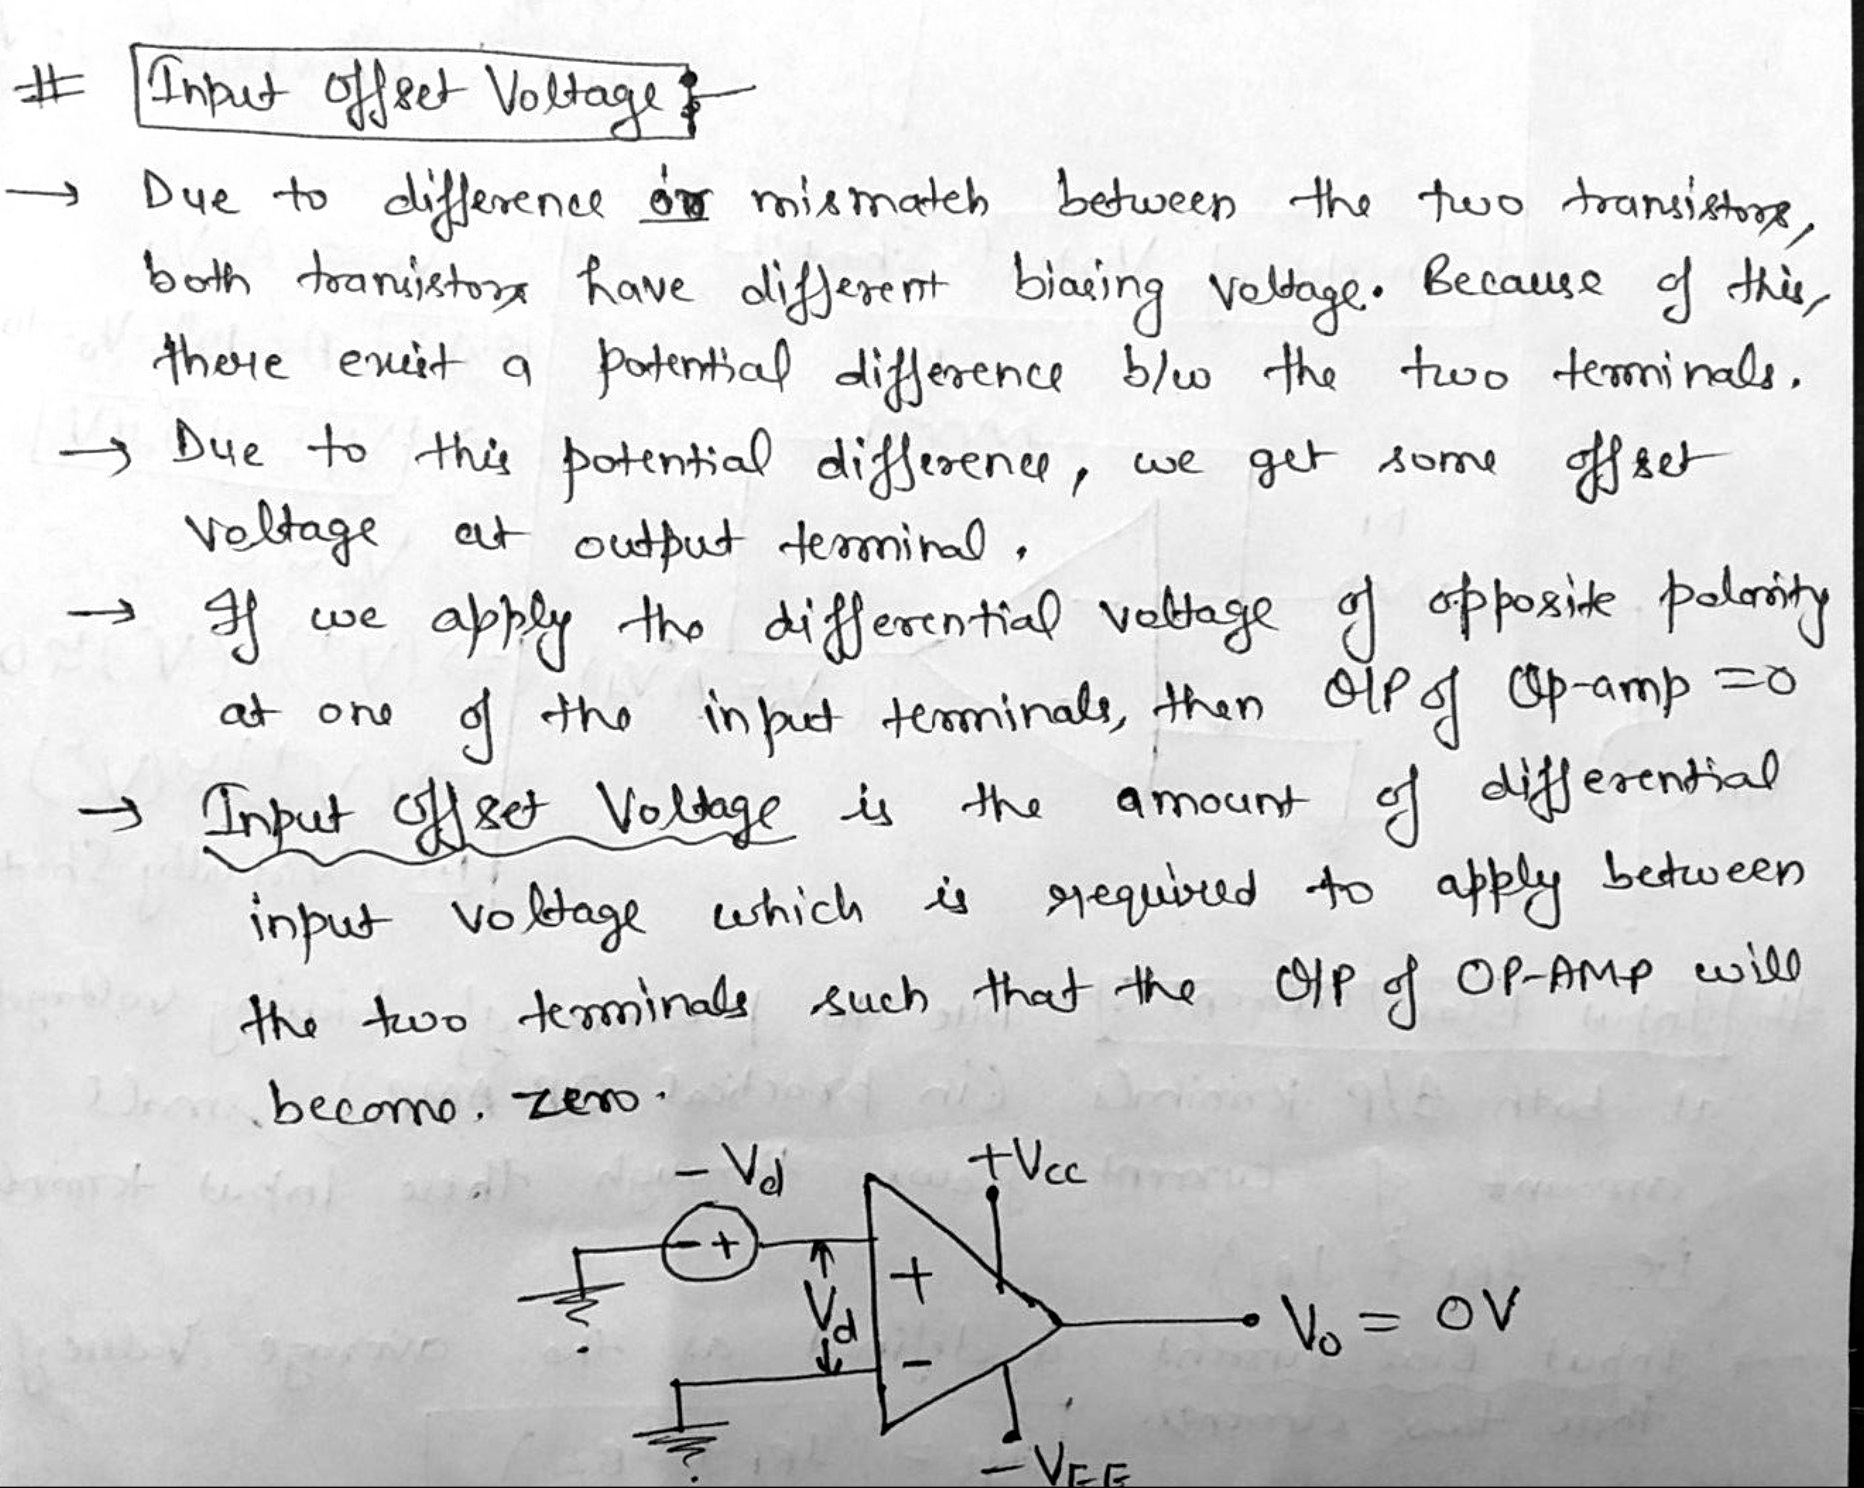 # Input Offset Voltage :-
→ Due to difference or mismatch between the two transistors,
both transistors have different biasing voltage. Because of this,
there exist a potential difference b/w the two terminals.
→ Due to this potential difference, we get some offset
voltage at output terminal.
→ If we apply the differential voltage of opposite polarity
at one of the input terminals, then O/P of Op-amp = 0
→ Input Offset Voltage is the amount of differential
input voltage which is required to apply between
the two terminals such that the O/P of OP-AMP will
become. zero.
- Vd
+Vcc
- +
+
Vd
Vo = 0V
-
-VEE